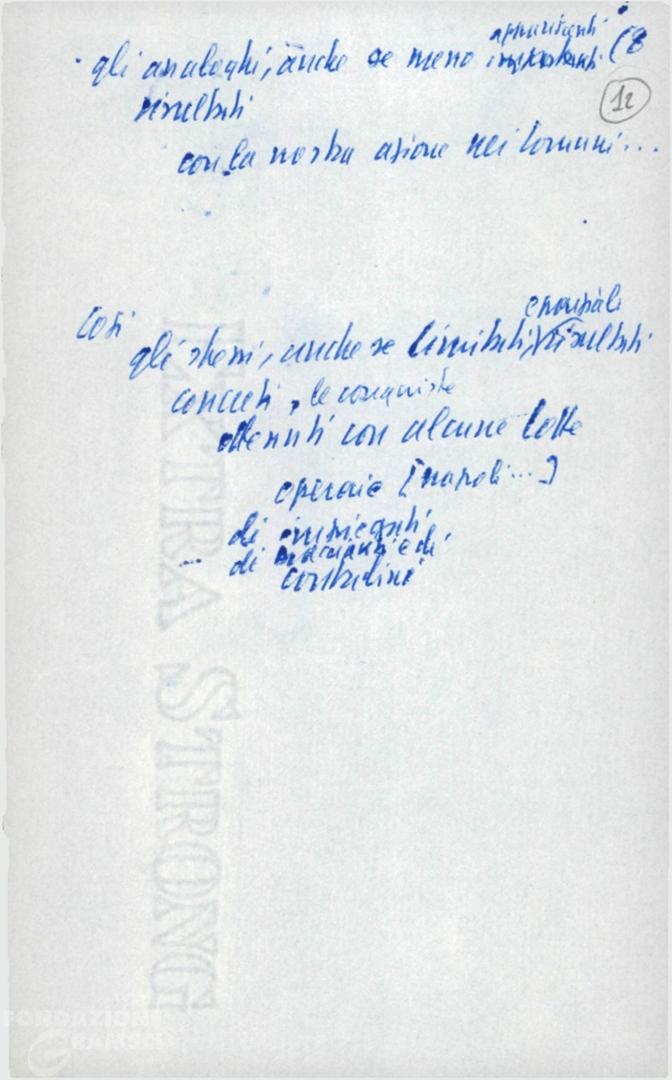 appariscenti
· gli analoghi, anche se meno importanti (8
12
risultati
con la nostra azione nei Comuni...
Così
e parziali
gli stessi, anche se limitati, risultati
concreti, le conquiste
ottenuti con alcune lotte
operaie [Napoli...]
di impiegati
- di braccianti e di
contadini
EXTRA STRONG
FONDAZIONE
GRAMSCI